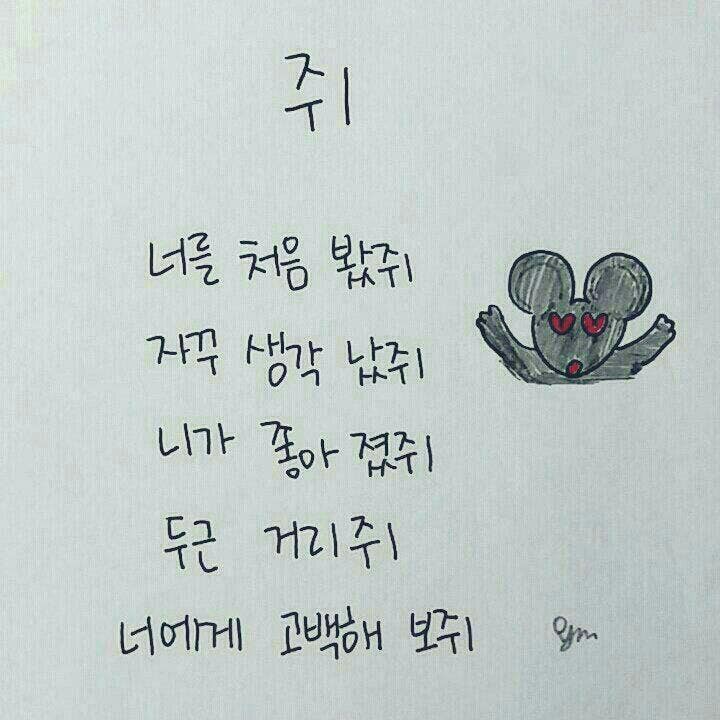 쥐
너를 처음 봤쥐
자꾸 생각 났쥐
니가 좋아 졌쥐
두근 거리쥐
너에게 고백해 보쥐